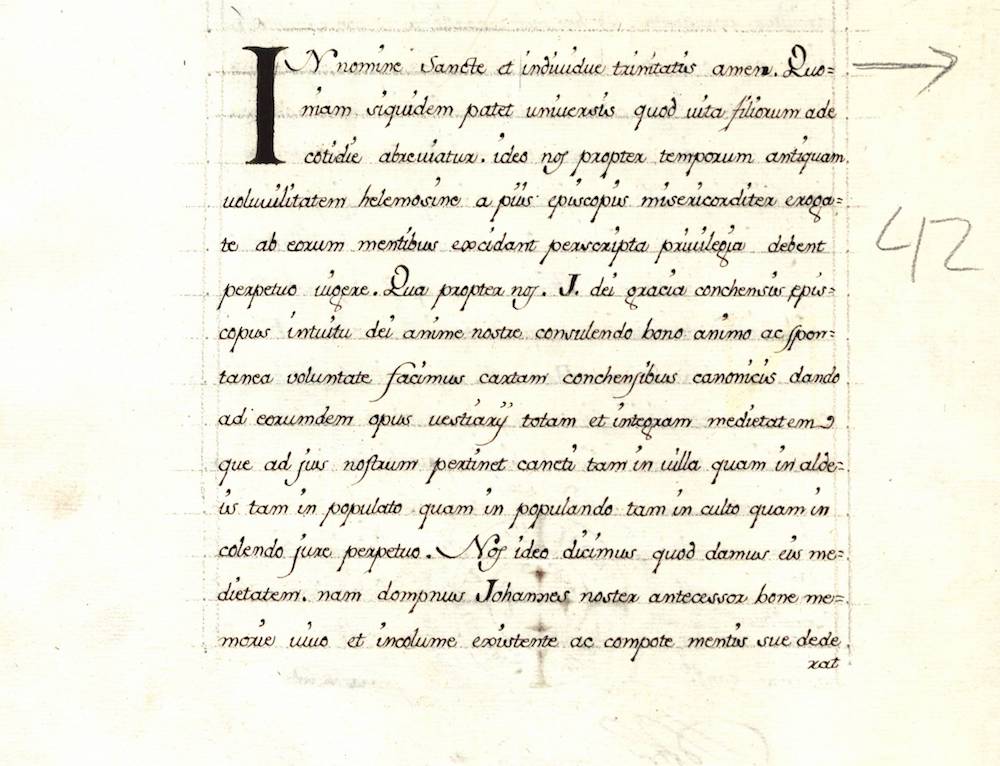 IN nomine Sancte et indiuidue trinitatis amen. Quo=
niam siquidem patet universis quod uita filiorum ade
cotidie abreviatur. ideo nos propter temporum antiquam
uoluuilitatem helemosine a piis episcopis misericorditer eroga=
te ab eorum mentibus excidant perscripta priuilegia debent
perpetuo uigere. Qua propter nos. J. dei gracia conchensis epis=
copus intuitu dei anime nostre consulendo bono animo ac spon=
tanea voluntate facimus cartam conchensibus canonicis dando
ad eorumdem opus uestiarij totam et integram medietatem
que ad jus nostrum pertinet cancti tam in uilla quam in alde=
is tam in populato quam in populando tam in culto quam in
colendo jure perpetuo. Nos ideo dicimus quod damus eis me=
dietatem. nam dompnus Johannes noster antecessor bone me=
morie uiuo et incolume existente ac compote mentis sue dede
rat
42